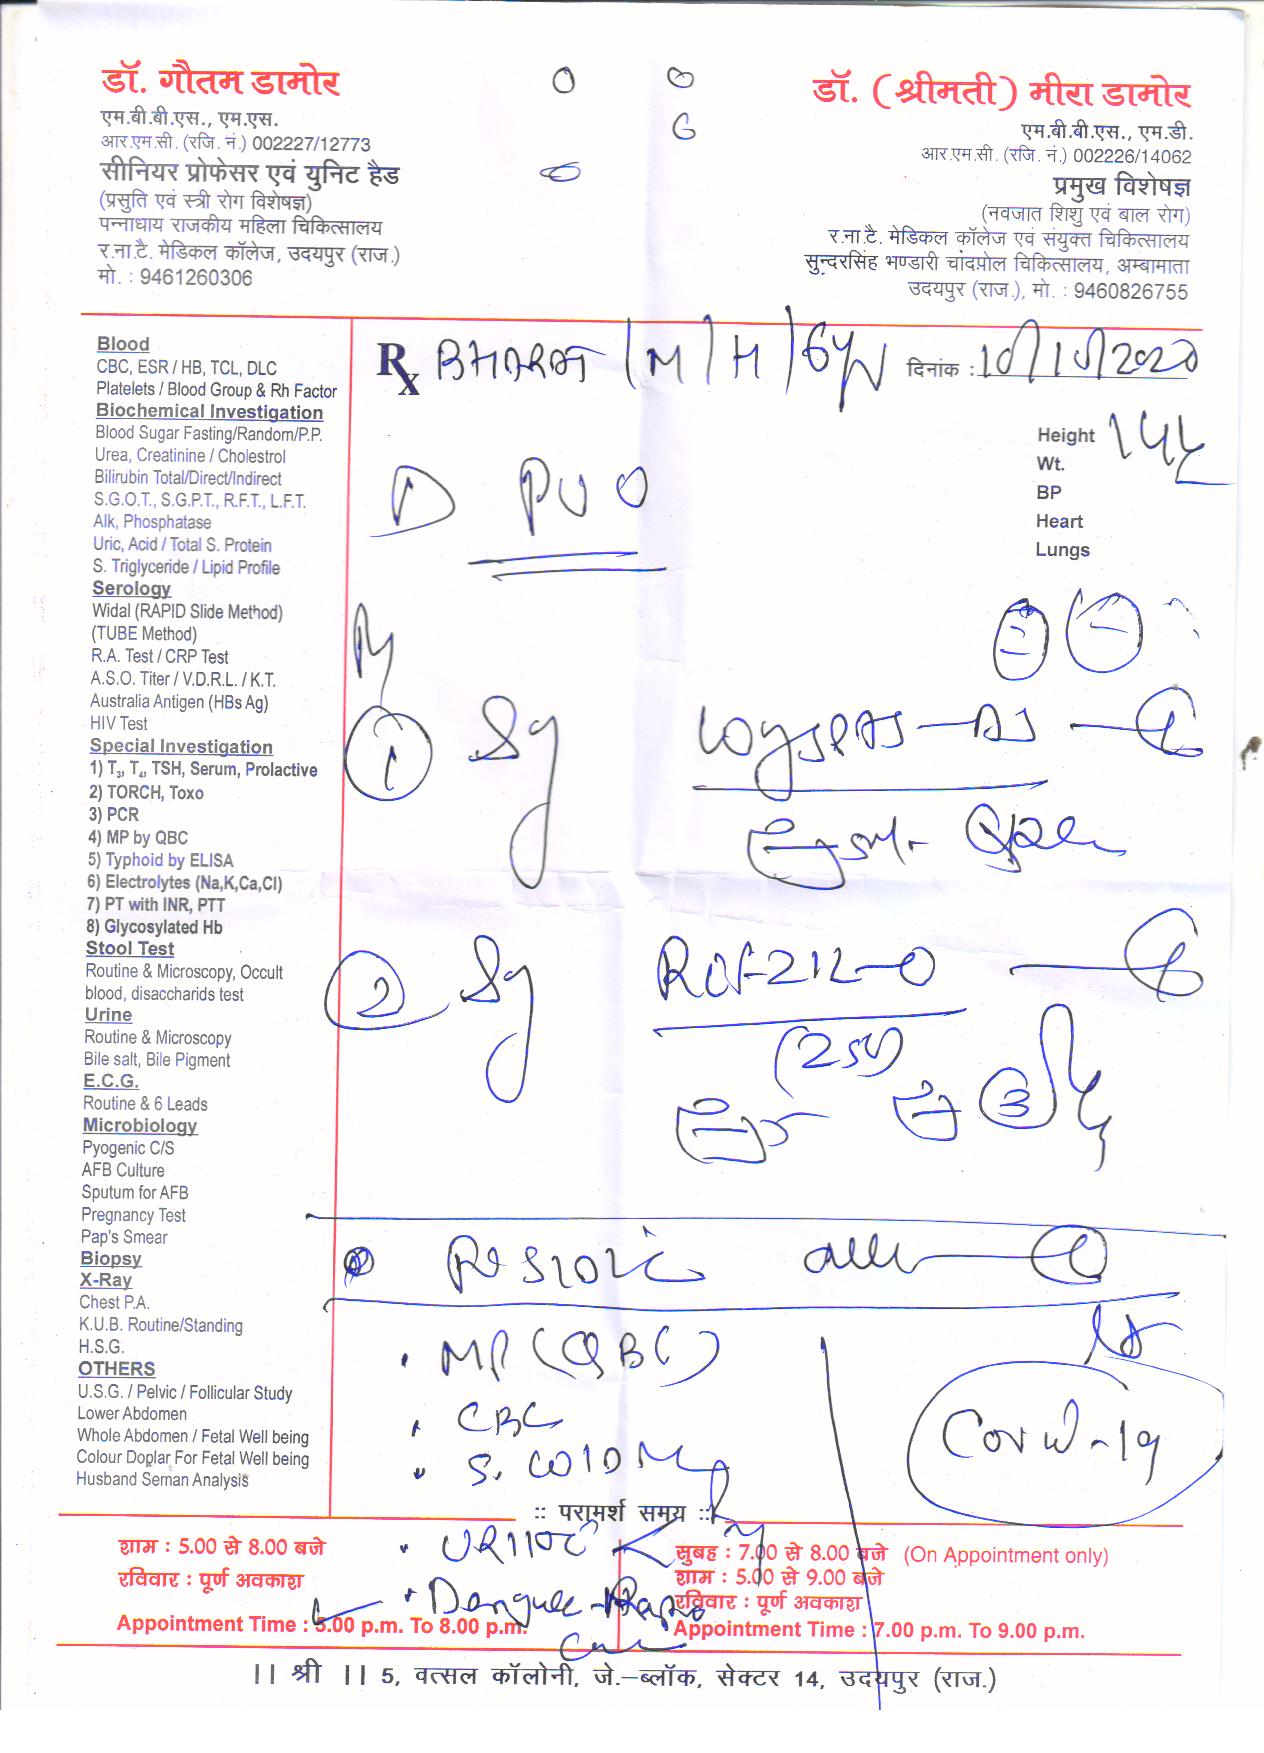 डॉ. गौतम डामोर
एम.बी.बी.एस., एम.एस.
आर.एम.सी. (रजि. नं.) 002227/12773
सीनियर प्रोफेसर एवं युनिट हैड
(प्रसुति एवं स्त्री रोग विशेषज्ञ)
पन्नाधाय राजकीय महिला चिकित्सालय
र.ना.टै. मेडिकल कॉलेज, उदयपुर (राज.)
मो. : 9461260306
डॉ. (श्रीमती) मीरा डामोर
एम.बी.बी.एस., एम.डी.
आर.एम.सी. (रजि. नं.) 002226/14062
प्रमुख विशेषज्ञ
(नवजात शिशु एवं बाल रोग)
र.ना.टै. मेडिकल कॉलेज एवं संयुक्त चिकित्सालय
सुन्दरसिंह भण्डारी चांदपोल चिकित्सालय, अम्बामाता
उदयपुर (राज.), मो. : 9460826755
Blood
CBC, ESR / HB, TCL, DLC
Platelets / Blood Group & Rh Factor
Biochemical Investigation
Blood Sugar Fasting/Random/P.P.
Urea, Creatinine / Cholestrol
Bilirubin Total/Direct/Indirect
S.G.O.T., S.G.P.T., R.F.T., L.F.T.
Alk, Phosphatase
Uric, Acid / Total S. Protein
S. Triglyceride / Lipid Profile
Serology
Widal (RAPID Slide Method)
(TUBE Method)
R.A. Test / CRP Test
A.S.O. Titer / V.D.R.L. / K.T.
Australia Antigen (HBs Ag)
HIV Test
Special Investigation
1) T3, T4, TSH, Serum, Prolactive
2) TORCH, Toxo
3) PCR
4) MP by QBC
5) Typhoid by ELISA
6) Electrolytes (Na,K,Ca,Cl)
7) PT with INR, PTT
8) Glycosylated Hb
Stool Test
Routine & Microscopy, Occult
blood, disaccharids test
Urine
Routine & Microscopy
Bile salt, Bile Pigment
E.C.G.
Routine & 6 Leads
Microbiology
Pyogenic C/S
AFB Culture
Sputum for AFB
Pregnancy Test
Pap's Smear
Biopsy
X-Ray
Chest P.A.
K.U.B. Routine/Standing
H.S.G.
OTHERS
U.S.G. / Pelvic / Follicular Study
Lower Abdomen
Whole Abdomen / Fetal Well being
Colour Doplar For Fetal Well being
Husband Seman Analysis
Rx BHARAT / M / H / 6yr दिनांक : 10/10/2020
Height
Wt.
BP
Heart
Lungs
D PUO
1 Sy
2 Sy
MP (QBC)
CBC
Covid-19
:: परामर्श समय ::
शाम : 5.00 से 8.00 बजे
रविवार : पूर्ण अवकाश
Appointment Time : 5.00 p.m. To 8.00 p.m.
Dengue
सुबह : 7.00 से 8.00 बजे (On Appointment only)
शाम : 5.00 से 9.00 बजे
रविवार : पूर्ण अवकाश
Appointment Time : 7.00 p.m. To 9.00 p.m.
|| श्री || 5, वत्सल कॉलोनी, जे.–ब्लॉक, सेक्टर 14, उदयपुर (राज.)